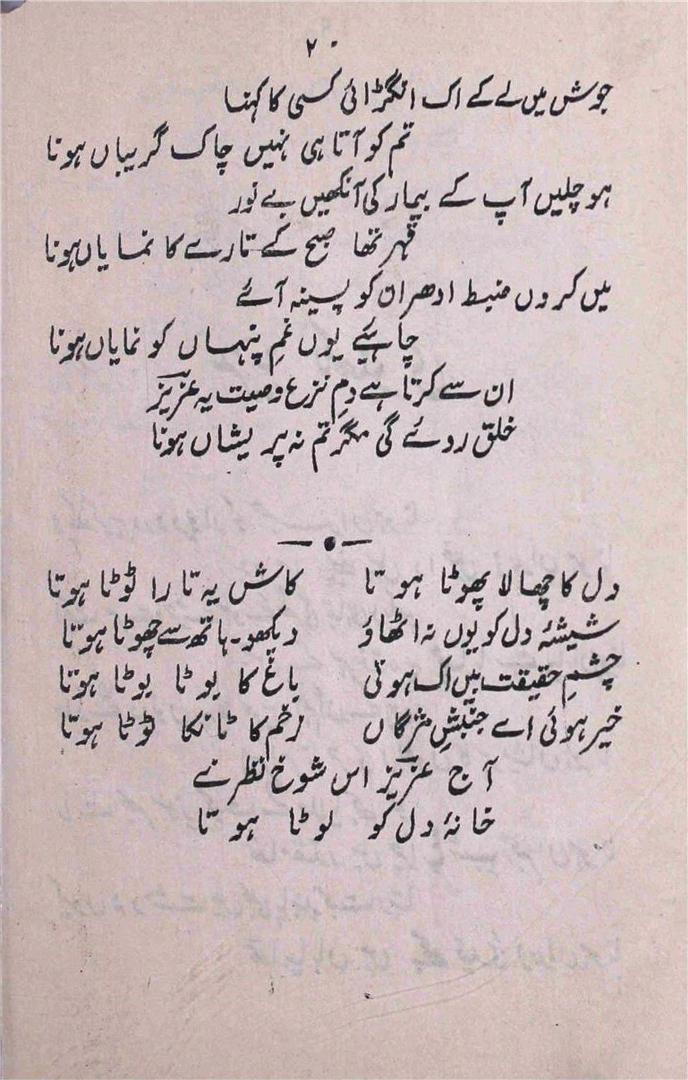 ۲۰
جوش میں لے کے اک انگڑائی کسی کا کہنا
تم کو آتا ہی نہیں چاک گریباں ہونا
ہو چلیں آپ کے بیمار کی آنکھیں بے نور
قہر تھا صبح کے تارے کا نمایاں ہونا
میں کروں ضبط ادھر ان کو پسینہ آئے
چاہیے یوں غمِ پنہاں کو نمایاں ہونا
ان سے کرتا ہے دمِ نزع وصیت یہ عزیزؔ
خلق روئے گی مگر تم نہ پریشاں ہونا
دل کا چھالا پھوٹا ہوتا کاش یہ تارا ٹوٹا ہوتا
شیشۂ دل کو یوں نہ اٹھاؤ دیکھو۔ ہاتھ سے چھوٹا ہوتا
چشمِ حقیقت بیں اک ہوتی باغ کا بوٹا بوٹا ہوتا
خیر ہوئی اے جنبشِ مژگاں زخم کا ٹانکا ٹوٹا ہوتا
آج عزیزؔ اس شوخ نظر نے
خانۂ دل کو لوٹا ہوتا